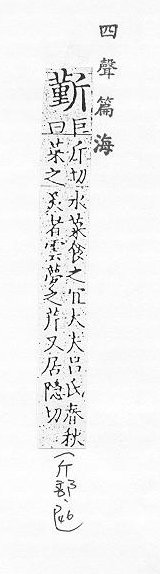 四聲篇海
斳
巨斤切水菜食之冝大夫吕氏春秋
曰菜之美者雲夢之芹又居隐切
(斤部、P46)